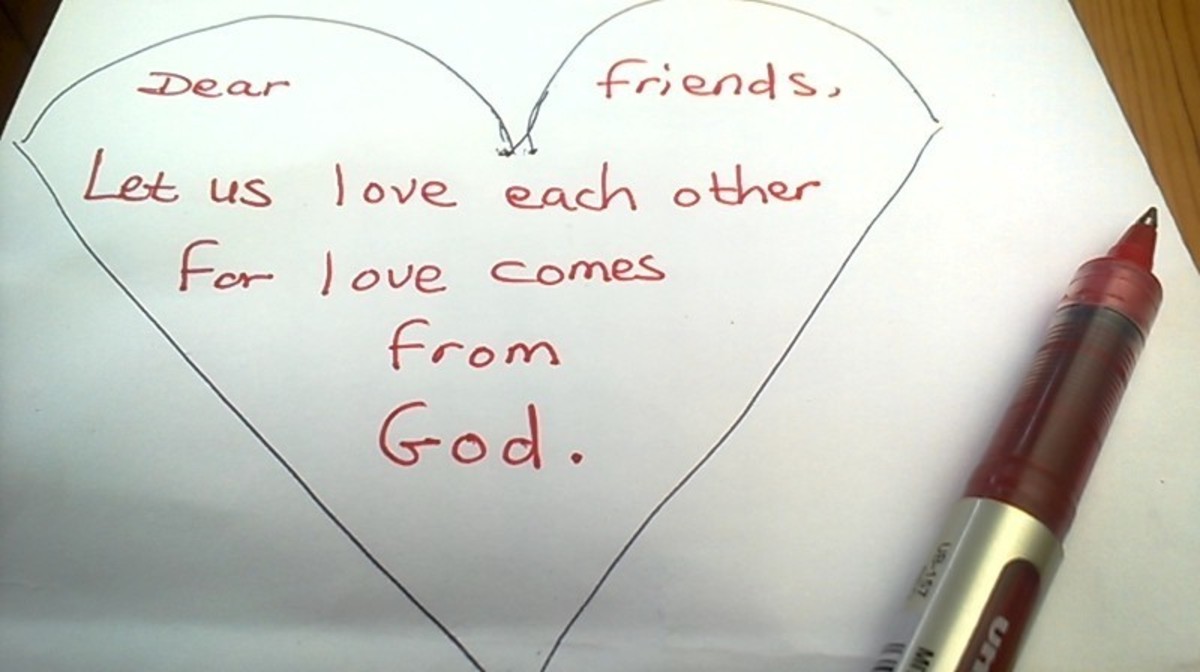 Dear friends,
Let us love each other
For love comes
from
God.
UB-157